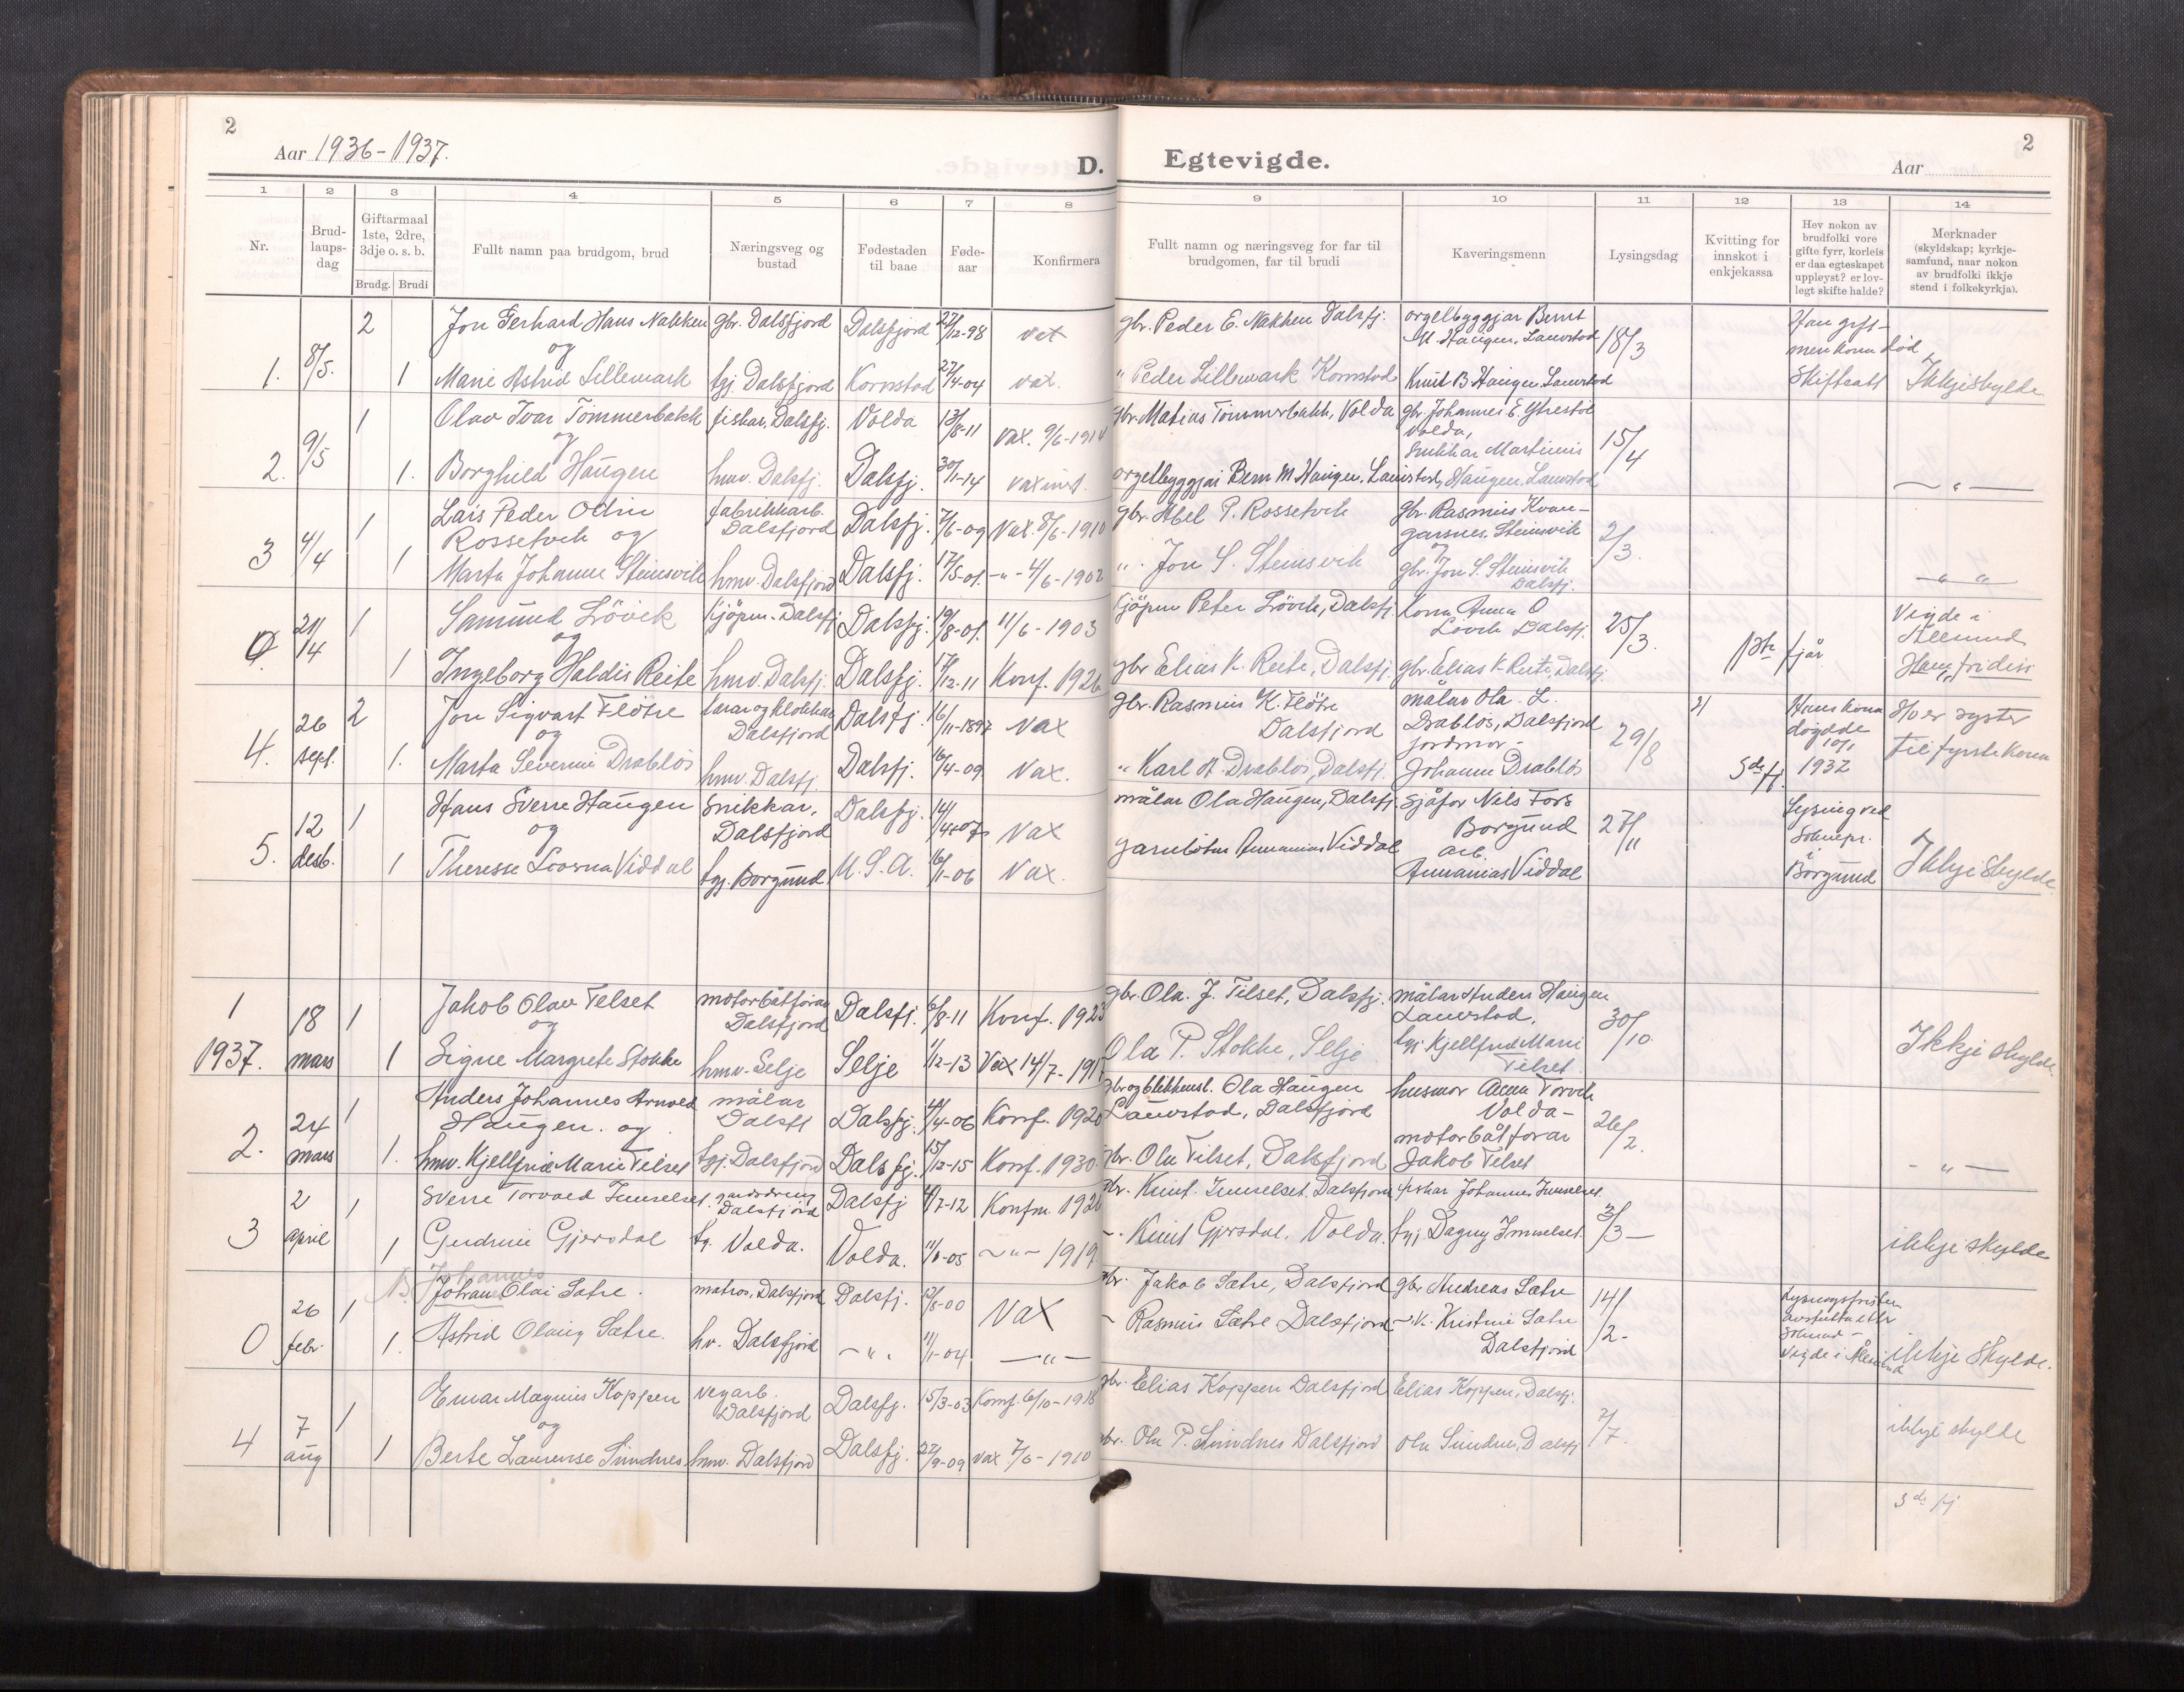 2
Aar 1936-1937.
D. Egtevigde.
2
Aar
1 2 3 4 5 6 7 8 9 10 11 12 13 14
Nr.
Brud-
laups-
dag
Giftarmaal
1ste, 2dre,
3dje o. s. b.
Brudg. Brudi
Fullt namn paa brudgom, brud
Næringsveg og
bustad
Fødestaden
til baae
Føde-
aar
Konfirmera
Fullt namn og næringsveg for far til
brudgomen, far til brudi
Kaveringsmenn
Lysingsdag
Kvitting for
innskot i
enkjekassa
Hev nokon av
brudfolki vore
gifte fyrr, korleis
er daa egteskapet
upployst? er lov-
legt skifte halde?
Merknader
(skyldskap; kyrkje-
samfund, naar nokon
av brudfolki ikkje
stend i folkekyrkja).
2 Jon Gerhard Hans Nakken gbr. Dalsfjord Dalsfjord 22/12-98 vax gbr. Peder E. Nakken Dalsfj. orgelbyggjar Bernt
M. Haugen, Lauvstad 18/3
og
1. 8/5. 1 Marie Astrid Lillemark tgj. Dalsfjord Kornstad 27/4-04 vax. " Peder Lillemark Kornstad Knut B Haugen Lauvstad Ikkje skylde
1 Olav Ivar Tömmerbakk fiskar, Dalsfj. Volda 13/8-11 vax. 9/6-191 gbr. Matias Tömmerbakk, Volda gbr. Johannes E. Ytrestöl
Volda,
og
2. 9/5 1. Borghild Haugen hmv. Dalsfj. Dalsfj. 30/11-14 orgelbyggjar Bern M Haugen, Lauvstad, snikkar Martinus
Haugen, Lauvstad 15/4 — " —
1 Lars Peder Odin
Rossetvik og fabrikkarb.
Dalsfjord Dalsfj. 7/6-09 Vax. 8/6-1910 gbr. Abel P. Rossetvik gbr. Rasmus Kvan-
garsnes, Steinsvik 2/3.
3 4/4 1 Marta Johanne Steinsvik hmv. Dalsfjord Dalsfj. 17/5-01. -"- 4/6-1902 ". Jon S. Steinsvik gbr. Jon S. Steinsvik
Dalsfj. — " —
1 Samund Lövik Kjöpm. Dalsfj Dalsfj. 19/8-01. 11/6-1903 Kjöpm Peter Lövik, Dalsfj. Kona Anna O
Lövik Dalsfj. 25/3. Vigde i
Ålesund
og
0. 1 Ingeborg Haldis Reite hmv. Dalsfj. Dalsfj. 17/12-11 Konf. 1926 gbr Elias K. Reite, Dalsfj. gbr. Elias K. Reite, Dalsfj.
2 Jon Sigvart Flöte lærar og klokkar
Dalsfjord Dalsfj. 16/11-1897 Vax gbr. Rasmus K. Flöte
Dalsfjord målar Ola. L.
Drablös, Dalsfjord 29/8 Hans kona
döydde
10/1
1932 Ho er syster
til fyrste kona
og
4. 26
sept. 1. Marta Severine Drablös hmv. Dalsfj. Dalsfj. Vax. " Karl A. Drablös, Dalsfj. jordmor
Johanne Drablös 5de fj.
1 Hans Sverre Haugen Snikkar,
Dalsfjord Dalsfj. Vax målar Ola Haugen, Dalsfj. Sjåfør Nils Fors
Borgund 27/11 Lysing ved
Soknepr.
i
Borgund
og
5. 12
desb. 1 Therese Viddal tgj. Borgund. U.S.A. 16/1-06 Vax. Ananias Viddal arb.
Ananias Viddal Ikkje Skylde
1 18 1 Jakob Olav Telset motorbåtförar
Dalsfjord Dalsfj. 6/8-11 Konf. 1923 gbr. Ola. J. Telset, Dalsfj. målar Anders Haugen
Lauvstad. 30/10.
og
1937. mars 1 Signe Margrete Stokke hmv. Selje Selje 1/12-13 Vax 14/7-191 Ola P. Stokke, Selje tgj Kjellfrid Marie
Telset Ikkje skylde.
1 Anders Johannes Arnold
Haugen. og målar
Dalsfj Dalsfj. Konf. 1920 Ola Haugen
Lauvstad, Dalsfjord husmor Anna Torvik
Volda-
2. 24
mars 1. hmv. Kjellfrid Marie Telset tgj. Dalsfjord Dalsfj. 15/12-15 Konf. 1930. gbr. Ola Telset, Dalsfjord motorbåtförar
Jakob Telset 26/2. - " -
2 1 Sverre Torvald Innselset. gardsdreng
Dalsfjord Dalsfj Konfm. 192 gbr. Knut. Innselset, Dalsfjord fiskar Johannes Innselset.
3 april 1 Gudrun Gjersdal tg. Volda. Volda. -"- 1919 Knut Gjersdal. Volda. tgj. Dagny Innselset. 3/3- ikkje skylde
Johannes
26 1 Johan Olai Sætre. matros, Dalsfjord Dalsfj. 12/8-00 Vax gbr. Jakob Sætre, Dalsfjord gbr Andreas Sætre 14/2-
0 febr. 1. Astrid Olaug Sætre. hv. Dalsfjord -"- 11/1-04 -"- Rasmus Sætre Dalsfjord Kristine Sætre
Dalsfjord Vigde i Ålesund ikkje Skylde.
1 Einar Magnus Koppen vegarb.
Dalsfjord Dalsfj. 15/3-03 Konf. 6/10-1918 gbr. Elias Koppen Dalsfjord Elias Koppen, Dalsfj.
og
4 7
aug 1 Berte Laurense Sundnes hmv. Dalsfjord Dalsfj. 22/9-09 vax 7/6-1910 gbr. Ola P. Sundnes Dalsfjord Ola Sundnes, Dalsfj 2/7. ikkje skylde
3de fj